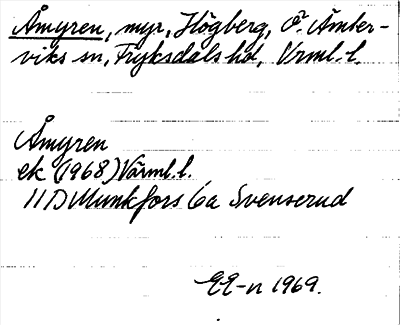 Åmyren, myr, Högberg, Ö. Ämter-
viks sn, Fryksdals hd, Vrml. l.
Åmyren
ek (1968) Värml. l.
11D Munkfors 6a Svenserud
EE-n 1969.